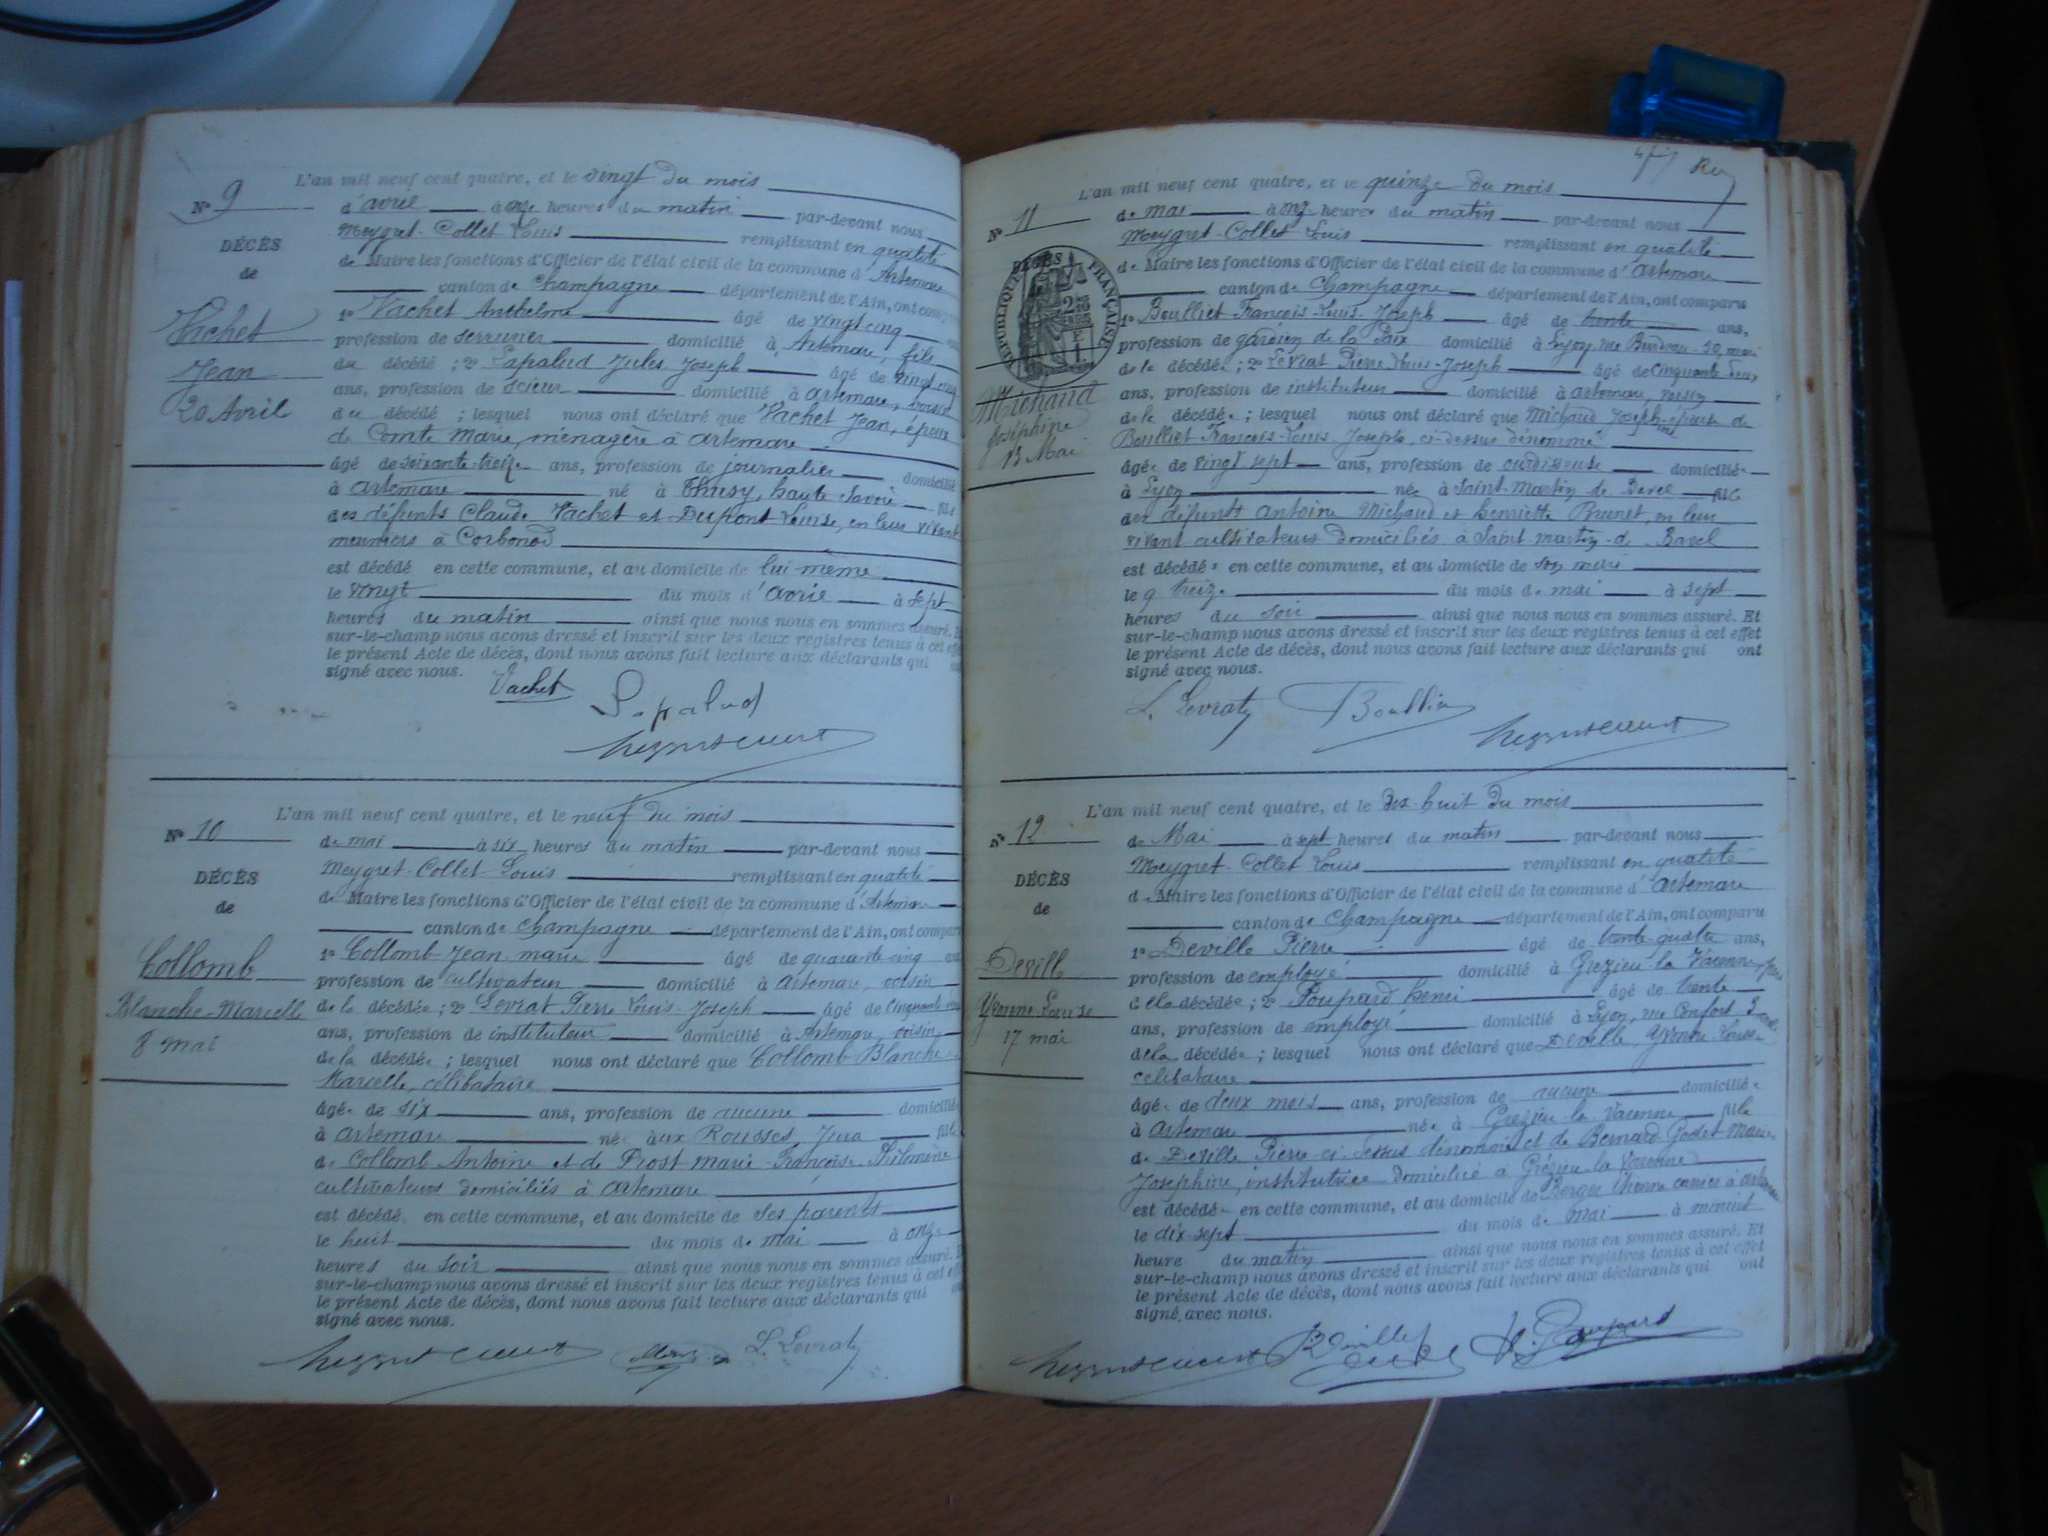 L'an mil neuf cent quatre, et le vingt du mois
N° 9
d'avril à onze heures du matin par-devant nous
DÉCÈS
Meygret-Collet Louis remplissant en qualité
de
de Maire les fonctions d'Officier de l'état civil de la commune d'Artemare
canton de Champagne département de l'Ain, ont comparu
Vachet
1° Vachet Anthelme âgé de vingt cinq
profession de serrurier domicilié à Artemare, fils
Jean
du décédé ; 2° Lapalud Jules Joseph âgé de vingt cinq
20 Avril
ans, profession de scieur domicilié à Artemare, voisin
du décédé ; lesquel nous ont déclaré que Vachet Jean, époux
de Comte Marie, ménagère à Artemare
âgé de soixante-treize ans, profession de journalier domicilié
à Artemare né à Thusy, haute Savoie fils
des défunts Claude Vachet et Dupont Louise, en leur vivant
meuniers à Corbonod
est décédé en cette commune, et au domicile de lui-même
le vingt du mois d'avril à sept
heures du matin ainsi que nous nous en sommes assuré. Et
sur-le-champ nous avons dressé et inscrit sur les deux registres tenus à cet effet
le présent Acte de décès, dont nous avons fait lecture aux déclarants qui
signé avec nous.
Vachet Lapalud
L'an mil neuf cent quatre, et le neuf du mois
N° 10
de mai à six heures du matin par-devant nous
DÉCÈS
Meygret-Collet Louis remplissant en qualité
de
de Maire les fonctions d'Officier de l'état civil de la commune d'Artemare
canton de Champagne département de l'Ain, ont comparu
Collomb
1° Collomb Jean marie âgé de quarante-cinq
profession de cultivateur domicilié à Artemare, voisin
Blanche-Marcelle
de la décédée ; 2° Levrat Pierre Louis-Joseph âgé de cinquante
8 mai
ans, profession de instituteur domicilié à Artemare, voisin
de la décédée ; lesquel nous ont déclaré que Collomb Blanche
Marcelle, célibataire
âgée de six ans, profession de aucune domiciliée
à Artemare née aux Rousses, Jura fille
de Collomb Antoine et de Prost marie-Françoise-Philomène
cultivateurs domiciliés à Artemare
est décédé en cette commune, et au domicile de ses parents
le huit du mois de mai à onze
heures du soir ainsi que nous nous en sommes assuré. Et
sur-le-champ nous avons dressé et inscrit sur les deux registres tenus à cet effet
le présent Acte de décès, dont nous avons fait lecture aux déclarants qui
signé avec nous.
L. Levrat
L'an mil neuf cent quatre, et le quinze du mois
N° 11
de mai à onze heures du matin par-devant nous
Meygret-Collet Louis remplissant en qualité
DÉCÈS
RÉPUBLIQUE FRANÇAISE
de Maire les fonctions d'Officier de l'état civil de la commune d'Artemare
canton de Champagne département de l'Ain, ont comparu
1° Boulliet François-Louis-Joseph âgé de trente ans,
profession de gardien de la Paix domicilié à Lyon, rue 50, mari
de la décédée ; 2° Levrat Pierre Louis-Joseph âgé de cinquante
ans, profession de instituteur domicilié à Artemare, voisin
Michaud
de la décédée ; lesquel nous ont déclaré que Michaud Joséphine épouse de
Joséphine
Boulliet François-Louis-Joseph, ci-dessus dénommé
13 Mai
âgée de vingt sept ans, profession de ourdisseuse domiciliée
à Lyon née à Saint-Martin de Bavel fille
des défunts Antoine Michaud et henriette Brunet, en leur
vivant cultivateurs domiciliés à Saint-martin-de Bavel
est décédée en cette commune, et au domicile de son mari
le treize du mois de mai à sept
heures du soir ainsi que nous nous en sommes assuré. Et
sur-le-champ nous avons dressé et inscrit sur les deux registres tenus à cet effet
le présent Acte de décès, dont nous avons fait lecture aux déclarants qui ont
signé avec nous.
L. Levrat
L'an mil neuf cent quatre, et le dix-huit du mois
N° 12
de Mai à sept heures du matin par-devant nous
Meygret-Collet Louis remplissant en qualité
DÉCÈS
de Maire les fonctions d'Officier de l'état civil de la commune d'Artemare
de
canton de Champagne département de l'Ain, ont comparu
1° Deville Pierre âgé de trente-quatre ans,
Deville
profession de employé domicilié à Grezieu-la Varenne, père
de la décédée ; 2° Poupard henri âgé de trente
Yvonne Louise
ans, profession de employé domicilié à Lyon, rue Confort
17 mai
de la décédée ; lesquel nous ont déclaré que Deville, Yvonne Louise
célibataire
âgée de deux mois ans, profession de aucune domiciliée
à Artemare née à Grezieu-la Varenne fille
de Deville Pierre ci-dessus dénommé et de Bernard Marie
Joséphine, institutrice domiciliée à Grézieu-la Varenne
est décédée en cette commune, et au domicile de Berger à Artemare
le dix-sept du mois de mai à minuit
heure du matin ainsi que nous nous en sommes assuré. Et
sur-le-champ nous avons dressé et inscrit sur les deux registres tenus à cet effet
le présent Acte de décès, dont nous avons fait lecture aux déclarants qui ont
signé avec nous.